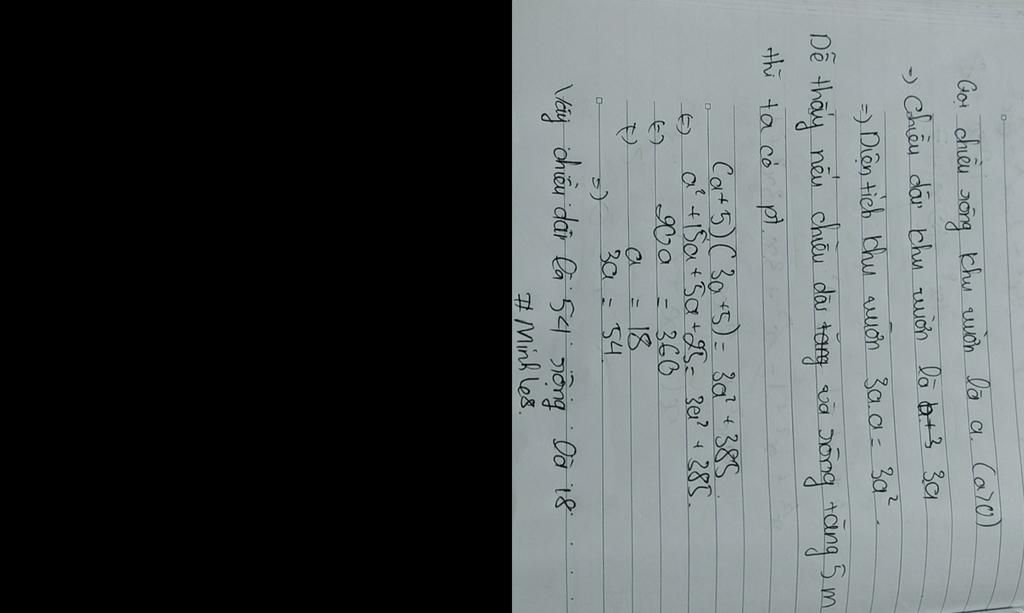 Gọi chiều rộng khu vườn là a. (a>0)
=> Chiều dài khu vườn là 3a
=> Diện tích khu vườn 3a.a = 3a².
Dễ thấy nếu chiều dài và rộng tăng 5 m
thì ta có pt.
(a+5)(3a+5) = 3a² + 385.
(=) a² + 15a + 5a + 25 = 3a² + 385.
(=) 20a = 360
(=) a = 18
=> 3a = 54
Vậy chiều dài là 54 rộng là 18
#Minh68.